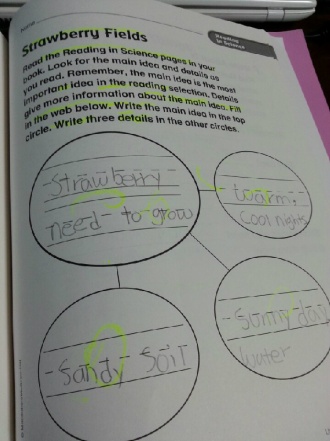 Name
Reading
in Science
Strawberry Fields
Read the Reading in Science pages in your
book. Look for the main idea and details as
you read. Remember, the main idea is the most
important idea in the reading selection. Details
give more information about the main idea. Fill
in the web below. Write the main idea in the top
circle. Write three details in the other circles.
Strawberry
need to grow
warm,
cool nights
Sunny day
water
Sandy Soil